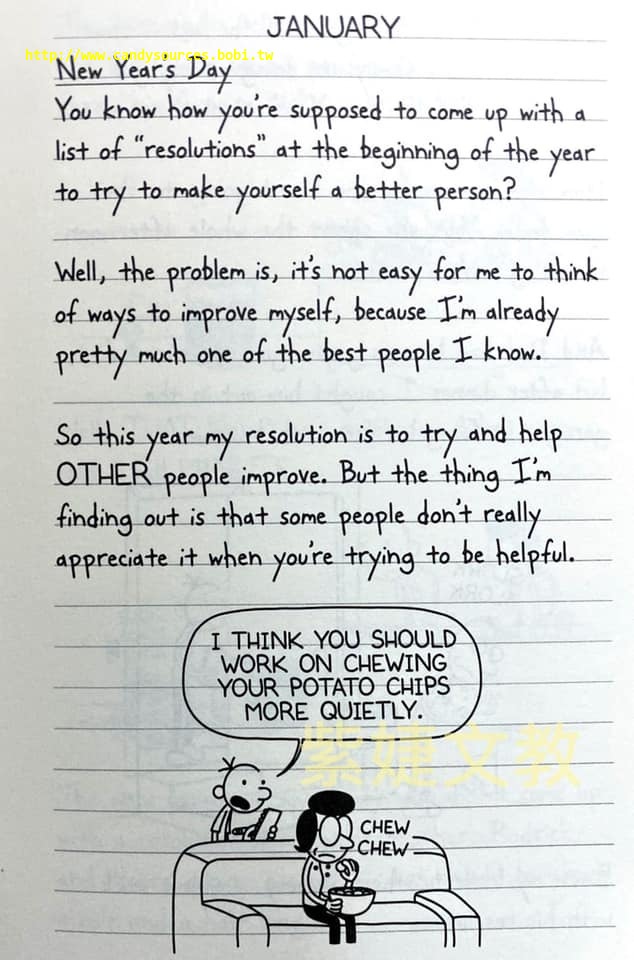 JANUARY
http://www.candysources.bobi.tw
New Year's Day
You know how you're supposed to come up with a
list of "resolutions" at the beginning of the year
to try to make yourself a better person?
Well, the problem is, it's not easy for me to think
of ways to improve myself, because I'm already
pretty much one of the best people I know.
So this year my resolution is to try and help
OTHER people improve. But the thing I'm
finding out is that some people don't really
appreciate it when you're trying to be helpful.
I THINK YOU SHOULD
WORK ON CHEWING
YOUR POTATO CHIPS
MORE QUIETLY.
紫婕文教
CHEW
CHEW